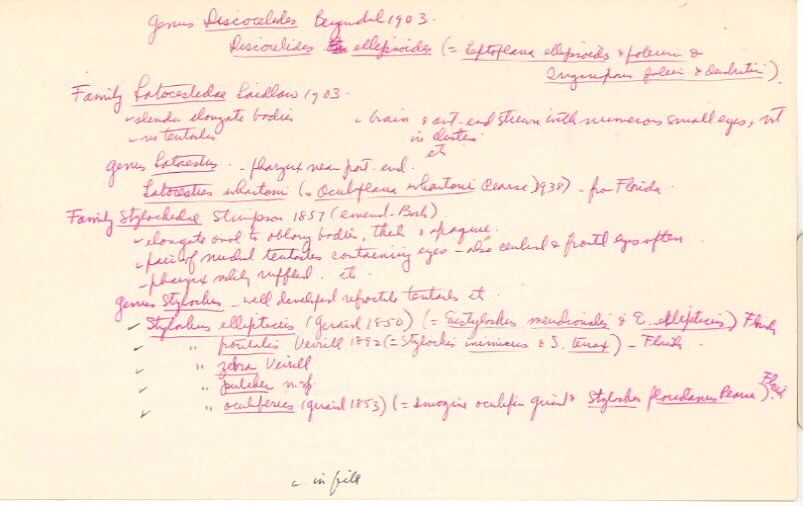 Genus Discocelides Bergendal 1903.
Discocelides ellipsoides (= Leptoplana ellipsoides &
Family Latocestidae Laidlaw 1903.
- slender elongate bodies - brain & ant. end strewn with numerous small eyes, not
- no tentacles in clusters
etc
genus Latocestus - pharynx near post. end.
Latocestus whartoni (= Oculoplana whartoni Pearse 1938) - fro Florida.
Family Stylochidae Stimpson 1857 (emend. Bock)
- elongate oval to oblong bodies, thick & opaque.
- pair of nuchal tentacles containing eyes - also cerebral & frontal eyes often
- pharynx ruffled. etc.
genus Stylochus - well developed tentacles etc
✓ Stylochus ellipticus (Girard 1850) (= Eustylochus meridionalis & E. ellipticus) Florida
✓ " frontalis Verrill 1892 (= Stylochus inimicus & S. ) - Florida.
✓ " zebra Verrill
✓ " pulcher n. sp.
✓ " oculiferus (Girard 1853) (= Imogine oculifera Girard & Stylochus floridanus Pearse) Florida.
✓ in file